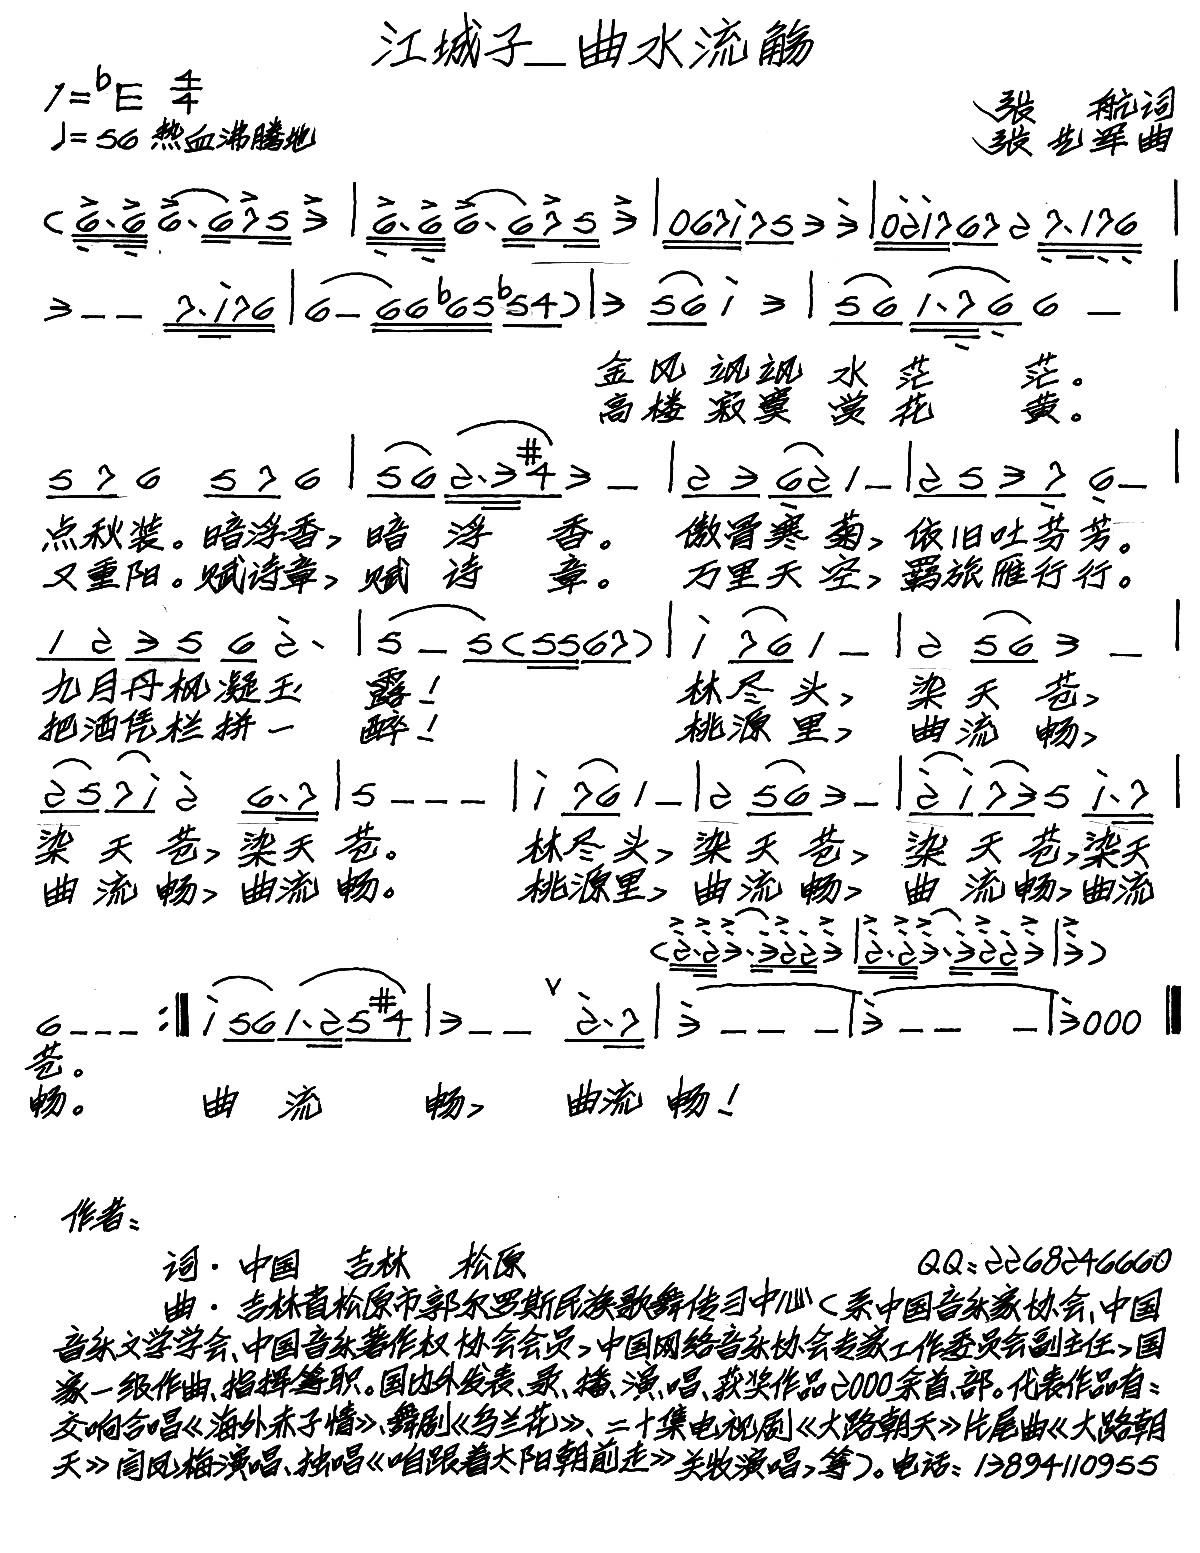 江城子_曲水流觞
1=♭E 4/4
♩=56 热血沸腾地
张 航词
张艺军曲
金风飒飒水茫 茫。
高楼寂寞赏花 黄。
点秋装。暗浮香,暗浮 香。 傲骨寒菊,依旧吐芬芳。
又重阳。赋诗章,赋诗 章。 万里天空,羁旅雁行行。
九月丹枫凝玉 露! 林尽头, 染天苍,
把酒凭栏拼一 醉! 桃源里, 曲流畅,
染天苍,染天苍。 林尽头,染天苍, 染天苍,染天
曲流畅,曲流畅。 桃源里,曲流畅, 曲流畅,曲流
苍。
畅。 曲流 畅, 曲流畅!
作者:
词·中国 吉林 松原 QQ:2268246660
曲·吉林省松原市郭尔罗斯民族歌舞传习中心(系中国音乐家协会、中国
音乐文学学会、中国音乐著作权协会会员,中国网络音乐协会专家工作委员会副主任,国
家一级作曲、指挥等职。国内外发表、录、播、演、唱、获奖作品2000余首、部。代表作品有:
交响合唱《海外赤子情》、舞剧《乌兰花》、二十集电视剧《大路朝天》片尾曲《大路朝
天》闫凤梅演唱、独唱《咱跟着太阳朝前走》关牧演唱,等)。电话:13894110955